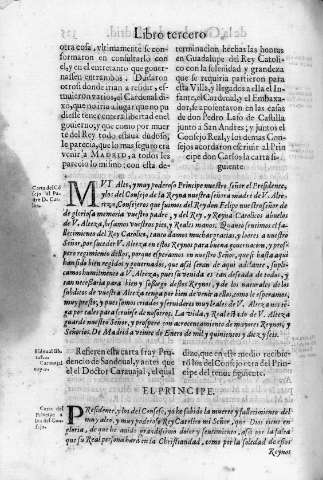 Libro tercero
otra cosa, vltimamente se con-
formaron en consultarlo con
el, y en el entretanto que gouer-
nassen entrambos. Dudaron
otros donde irian a residir, e
stuuieron varios, el Cardenal di-
xo, que no iria a lugar que no pu
diesse tener entera libertad en el
gouierno; y que como por muer
te del Rey todo estaua dudoso,
le parecia, que lo mas seguro era
venir a MADRID, a todos les
parecio lo mismo; con esta de-
terminacion hechas las honras
en Guadalupe del Rey Catoli-
co con la solenidad y grandeza
que se requiria partieron para
esta Villa, y llegados a ella el In-
fante, el Cardenal, y el Embaxa-
dor, se aposentaron en las casas
de don Pedro Laso de Castilla
junto a San Andres; y juntos el
Consejo Real, y los demas Conse-
jos acordaron escriuir al Prin
cipe don Carlos la carta si-
guiente.
MVY Alto, y muy poderoso Principe nuestro señor el Presidente,
y los del Consejo de la Reyna nuestra señora madre de V. Alte-
za, Consejeros que fuimos del Rey don Felipe nuestro señor de
de gloriosa memoria vuestro padre, y del Rey, y Reyna Catolicos abuelos
de V. Alteza, besamos vuestros pies, y Reales manos. Quanto sentimos el fa-
llecimiento del Rey Catolico, tanto damos muchas gracias, y loores a nuestro
Señor, por suceder V. Alteza en estos Reynos para buena gouernacion, y pros-
pero regimiento dellos, porque esperamos en nuestro Señor, que si hasta aqui
han sido bien regidos y gouernados, que assi seran de aqui adelante, supli-
camos humilmente a V. Alteza, pues su venida es tan deseada de todos, y
tan necessaria para bien y sossiego destos Reynos, y de los naturales de los
subditos de vuestra Alteza tenga por bien de venir a ellos, como lo esperamos,
muy presto, y pues somos criados y seruidores muy leales de V. Alteza nos ten-
ga por tales para seruirse de nosotros. La vida, y Real estado de V. Alteza
guarde nuestro Señor, y prospere con acrecentamiento de mayores Reynos, y
Señorios. De Madrid a veinte de Enero de mil, y quinientos y diez y seis.
Refieren esta carta fray Pru
dencio de Sandoual, y antes que
el el Doctor Caruajal, el qual
dize, que en este medio recibie-
ron los del Consejo otra del Prin-
cipe del tenor siguiente.
EL PRINCIPE.
PResidente, y los del Consejo, yo he sabido la muerte y fallecimiento del
muy alto, y muy poderoso Rey Catolico mi Señor, que Dios tiene en
gloria, de que he auido grandissimo dolor y sentimiento, assi por la falta
que su Real persona hará en la Christiandad, como por la soledad de essos
Reynos